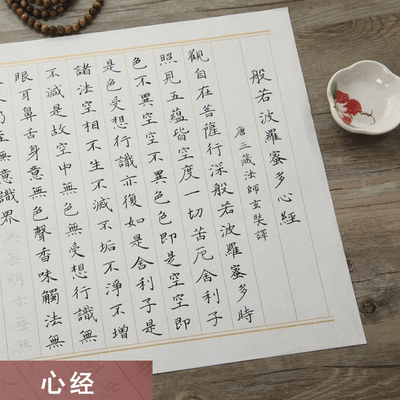 般若波羅蜜多心經
唐三藏法師玄奘譯
觀自在菩薩行深般若波羅蜜多時
照見五蘊皆空度一切苦厄舍利子
色不異空空不異色色即是空空即
是色受想行識亦復如是舍利子是
諸法空相不生不滅不垢不淨不增
不減是故空中無色無受想行識無
眼耳鼻舌身意無色聲香味觸法無
乃至無意識界無無明亦無無
心经